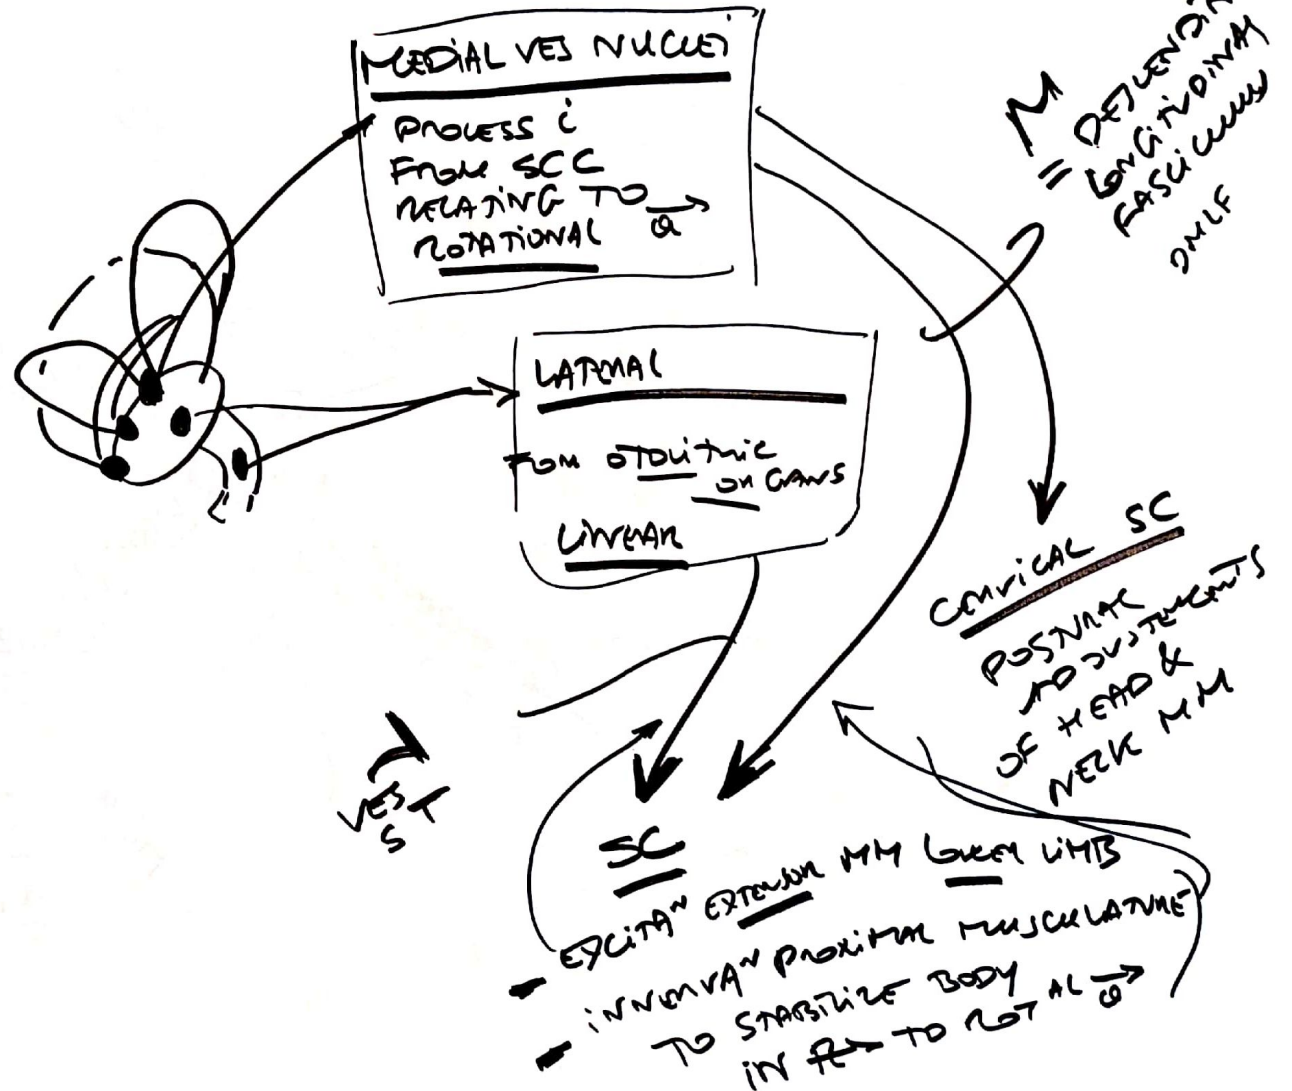 MEDIAL VES NUCLEI
PROCESS i
FROM SCC
RELATING TO
ROTATIONAL
M
= DESCENDIN
LONGITUDINAL
FASCICULUS
DMLF
LATERAL
FROM OTOLITHIC
ORGANS
LINEAR
CERVICAL SC
POSTURAL
ADJUSTEMENTS
OF HEAD &
NECK MM
VES
ST
SC
- EXCITAᴺ EXTENSOR MM LOWER LIMB
- INNERVAᴺ PROXIMAL MUSCULATURE
TO STABILIZE BODY
IN R→ TO ROTᴬᴸ